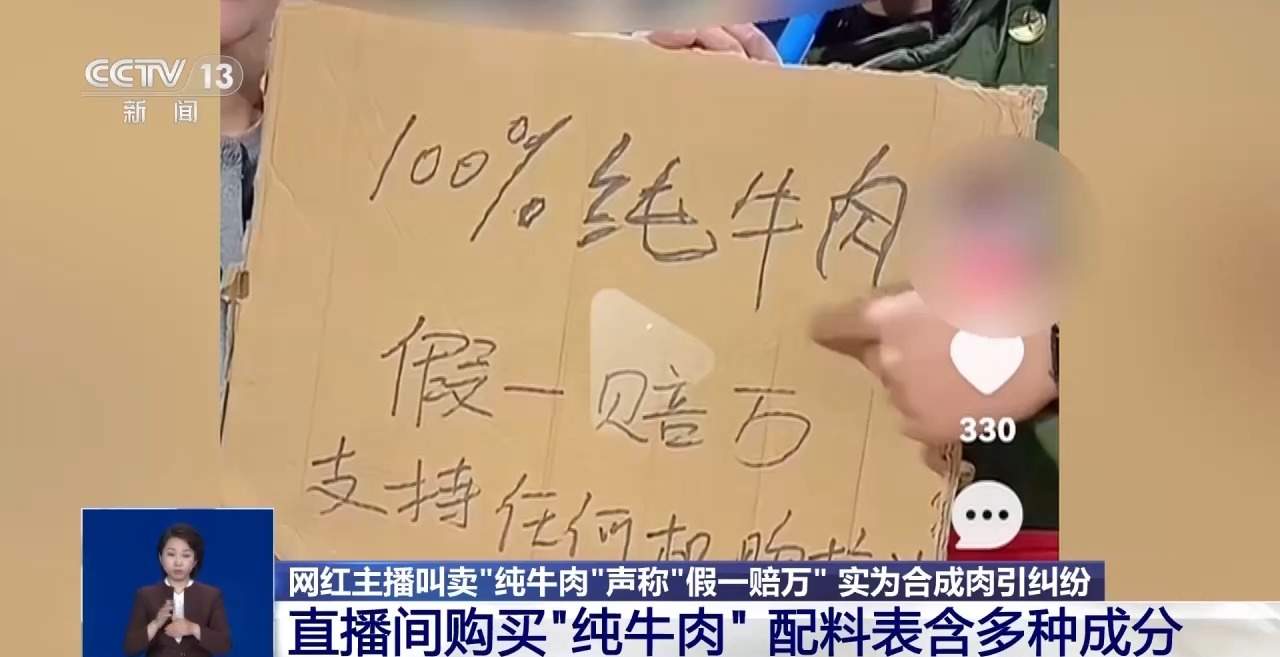 CCTV 13
新闻
100%纯牛肉
假一赔万
支持任何机
330
网红主播叫卖"纯牛肉"声称"假一赔万" 实为合成肉引纠纷
直播间购买"纯牛肉" 配料表含多种成分